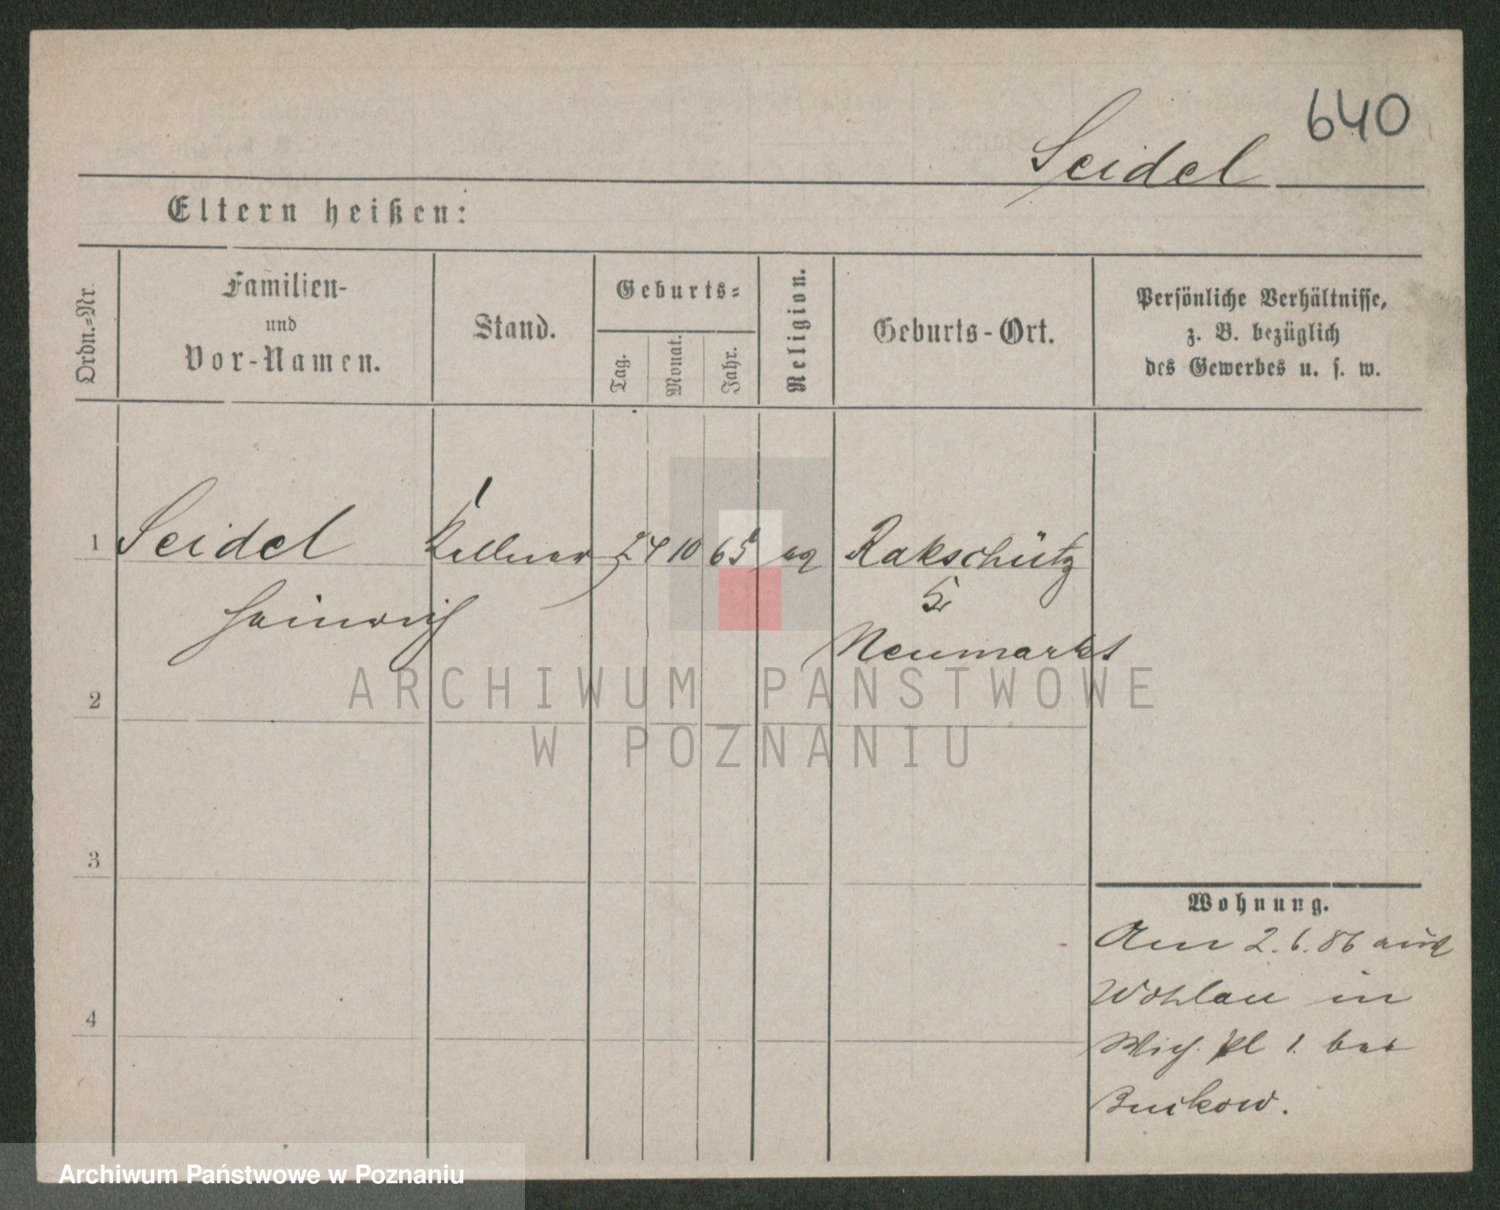 640
Seidel
Eltern heißen:
Ordn.-Nr.
Familien-
und
Vor-Namen.
Stand.
Geburts-
Tag.
Monat.
Jahr.
Religion.
Geburts-Ort.
Persönliche Verhältnisse,
z. B. bezüglich
des Gewerbes u. s. w.
1 Seidel Kellner 24 10 65 Rakschütz
Heinrich
Neumarkt
2
3
4
Wohnung.
Am 2.6.86 aus
Wohlau in
pl 1. bei
ARCHIWUM PAŃSTWOWE
W POZNANIU
Archiwum Państwowe w Poznaniu